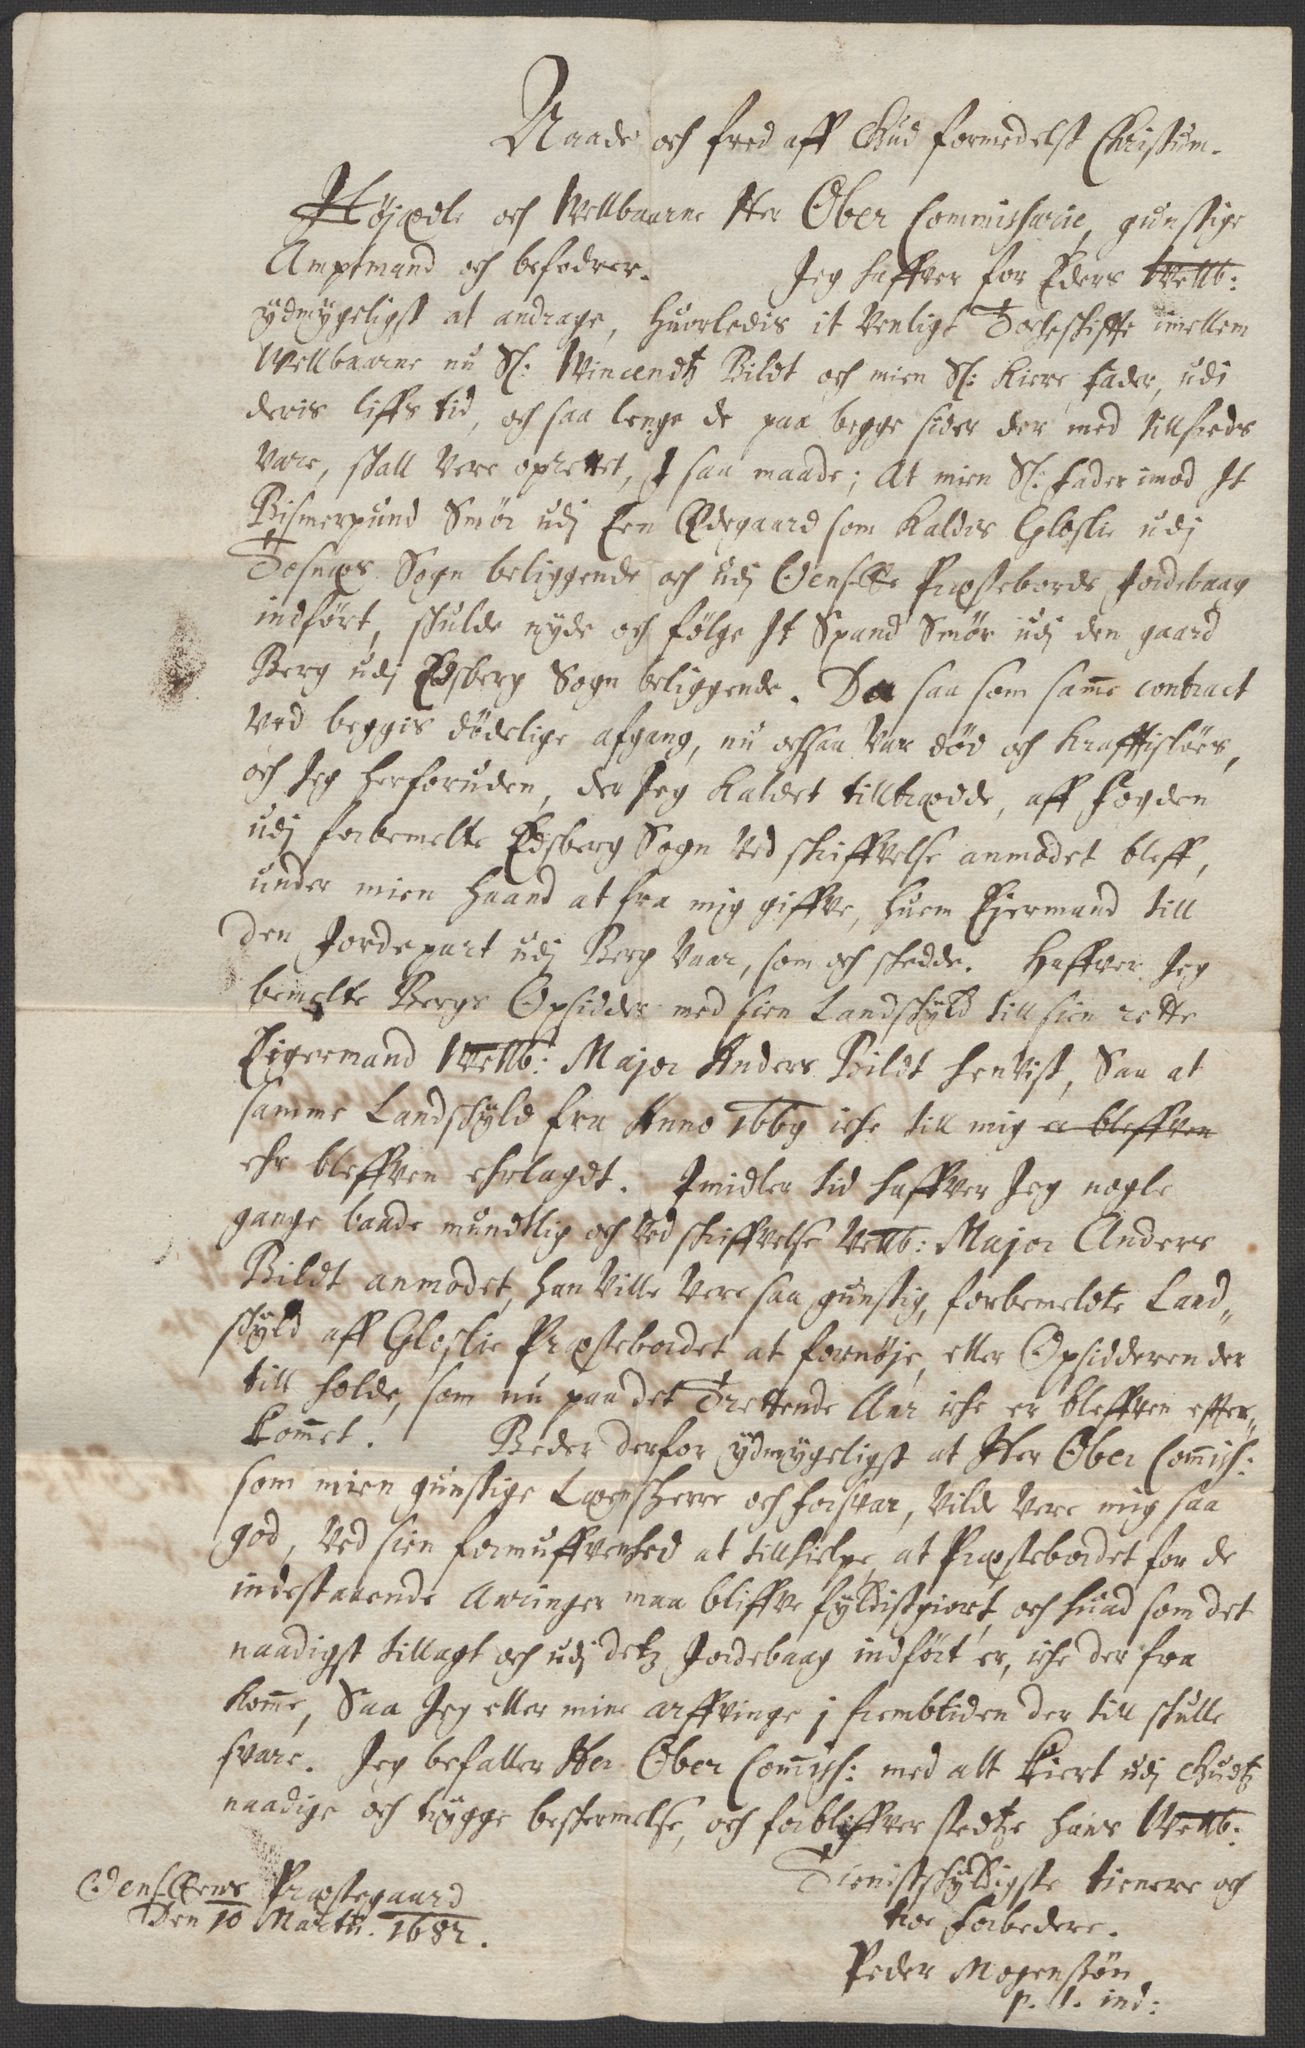 Naade och fred aff Gud formedelst Christum.
Höjædle och Wellbaarne Her Ober Commissarie, gunstige
Amptmand och befodrer. Jeg haffver for Eders Wellb:
ydmygeligst at andrage, huorledis it venligt Bytteskiffte imellem
Wellbaarne nu Sl: Wincendtz Bildt och mien Sl: Kiere Fader, udi
deris liffs tid, och saa lenge de paa begge sider der med tillfreds
vare, skall vere oprettet, I saa maade; At mien Sl: Fader imod It
Bismerpund Smör udj Een Ødegaard som kaldis Gloslie udj
Tosnæs Sogn beliggende och udj Præstebords Jordebaag
indfört, skulde nyde och fölge It Spand Smör udj den gaard
Berg udj Edsberg Sogn beliggende. Da saa som same contract
ved beggis dödelige afgang, nu ochsaa var död och krafftislöes,
och Jeg herforuden, der Jeg kaldet tilltrædde, aff Fogden
udj forbemelte Edsberg Sogn ved skriffvelse anmodet bleff,
under mien haand at fra mig giffve, huem Ejermand till
den Jordepart udj Berg vaar, som och skedde. Haffver Jeg
bemelte Bergs Opsidder med sien Landskyld till sien rette
Eigermand Wellb: Major Anders Bildt henvist, Saa at
samme Landskyld fra Anno 1669 iche till mig er bleffven
ehr bleffven ehrlagdt. Imidler tid haffver Jeg nogle
gange baade mundtlig och ved skriffvelse Wellb: Major Anders
Bildt anmodet, han ville vere saa gunstig, forbemeldte Land„
skyld aff Gloslie Præstebordet at fornöje, eller Opsidderen der
till holde, som nu paa det Trettende Aar iche er bleffven effter„
kommet. Beder derfor ydmygeligst at Her Ober Commiss:
som mien gunstige Lænsherre och forsvar, vilde vere mig saa
god, ved sien formuffvenhed at tillhielpe, at Præstebordet for de
indestaaende Aaringer maa bliffve fyldistgiort, och huad som det
naadigst tillagt och udj detz Jordebaag indfört er, iche der fra
komme, Saa Jeg eller mine arffvinge j frembtiden der till skulle
svare. Jeg befaller Her Ober Commiss: med alt Kiert udj Gudtz
naadige och trygge beskermelse, och forbliffver stedtze hans Wellb:
Tienistskyldigste tienere och
troe Forbedere.
Peder Mogensøn
p. t. ind:
Præstegaard
Den 10 Martii. 1682.